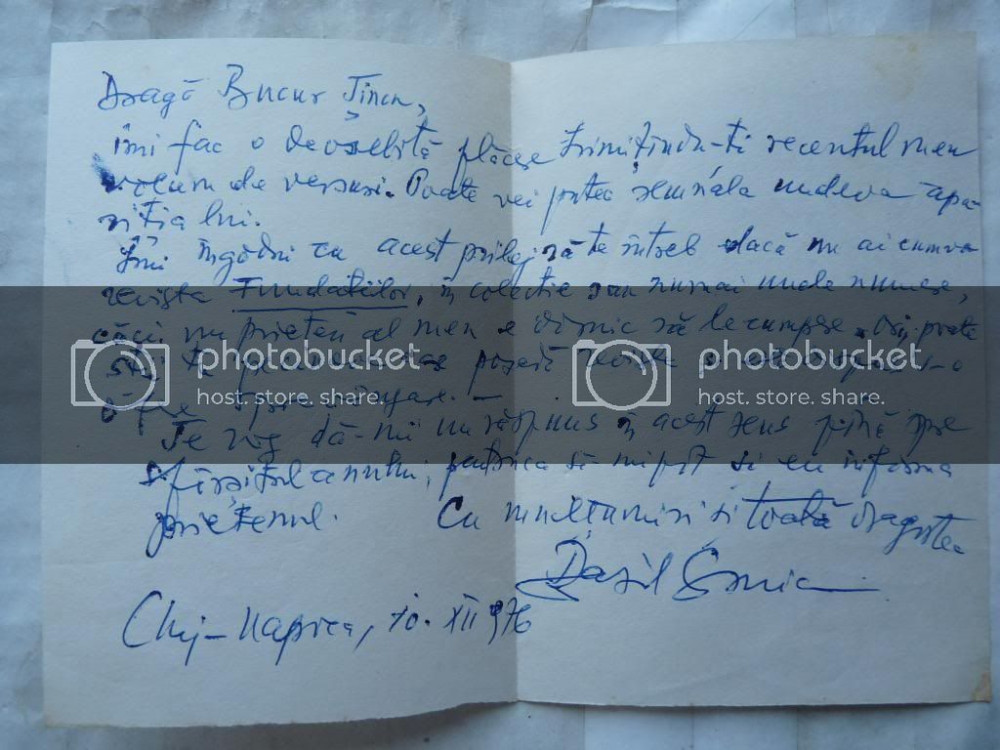 Dragă Bucur Țincu,
îmi fac o deosebită plăcere trimițîndu-ți recentul meu
volum de versuri. Poate vei putea semnala undeva apa-
riția lui.
Îmi îngădui cu acest prilej să te întreb dacă nu ai cumva
revista Fundațiilor, în colecție sau numai unele numere,
căci un prieten al meu e dornic să le cumpere.
photobucket
host. store. share.
photobucket
host. store. share.
Te rog dă-mi un răspuns în acest sens pînă spre
sfîrșitul anului, pentru ca să-mi pot și eu informa
prietenul. Cu mulțumiri și toată dragostea
Cluj-Napoca, 10. XII 976